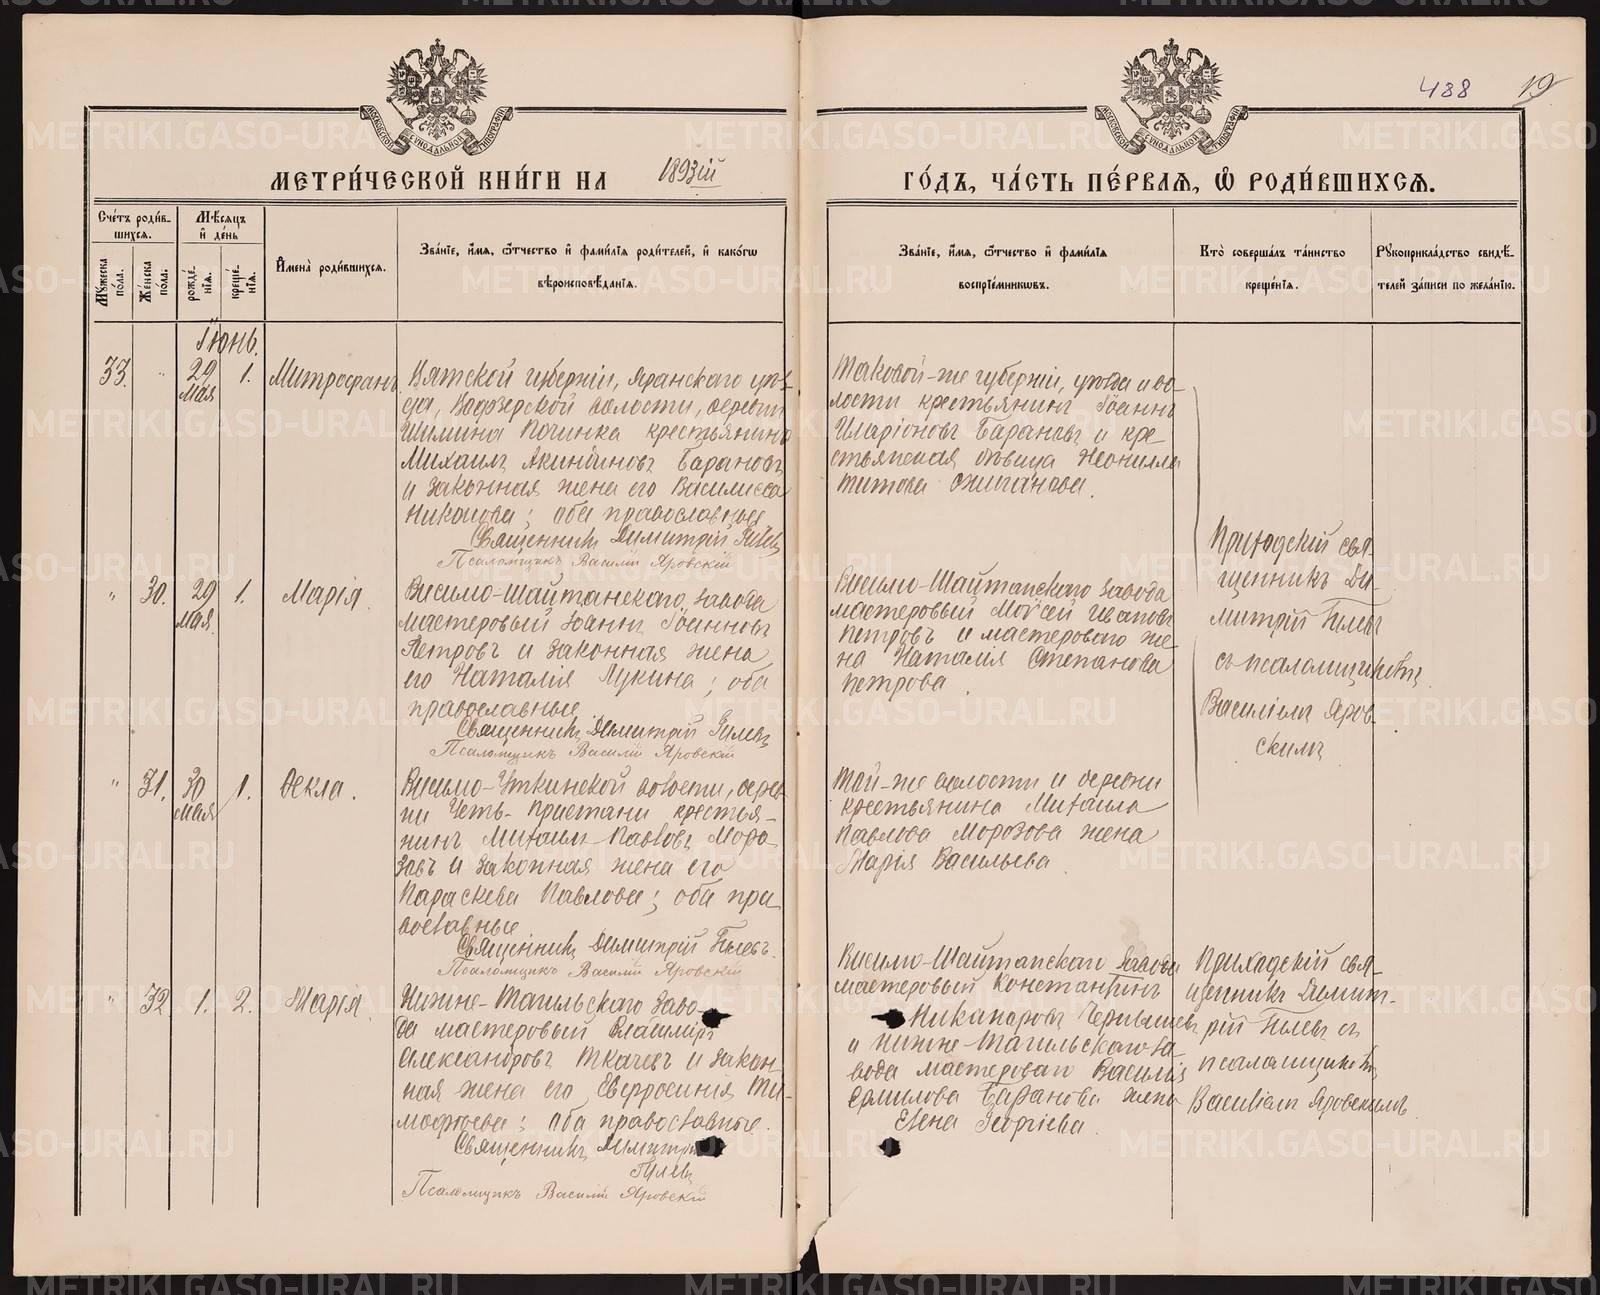 438 19
МОСКОВСКОЙ СѴНОДАЛЬНОЙ ТИПОГРАФІИ
МОСКОВСКОЙ СѴНОДАЛЬНОЙ ТИПОГРАФІИ
МЕТРИ́ЧЕСКОЙ КНИ́ГИ НА 1893ій
ГО́ДЪ, ЧА́СТЬ ПЕ́РВАЯ, Ѡ҆ РОДИ́ВШИХСЯ.
Сче́тъ роди́в-
шихся.
Мѣ́сяцъ
и҆ де́нь
Мꙋжеска по́ла.
Же́нска по́ла.
рожде́-
нїя.
креще́-
нїя.
И҆мена̀ роди́вшихся.
Зва́нїе, и҆́мя, ѻ҆́тчество и҆ фами́лїя роди́телей, и҆ како́гѡ
вѣроисповѣ́данїя.
Зва́нїе, и҆́мя, ѻ҆́тчество и҆ фами́лїя
воспрїе́мникѡвъ.
Кто̀ соверша́лъ та́инство
креще́нїя.
Рꙋкоприкла́дство свидѣ́-
телей за́писи по жела́нїю.
Іюнь.
33. " 29 мая 1. Митрофанъ
Вятской губерніи, Яранскаго уѣз-
да, Водозерской волости, деревни
Шимина Починка крестьянинъ
Михаилъ Акиндиновъ Барановъ
и законная жена его Василисса
Никонова; оба православные
Священникъ Димитрій Гилевъ
Псаломщикъ Василій Яровскій
Таковой-же губерніи, уѣзда и во-
лости крестьянинъ Іоаннъ
Иларіоновъ Барановъ и кре-
стьянская дѣвица Неонилла
Титова Ожиганова.
" 30. 29 мая. 1. Марія.
Висимо-Шайтанскаго завода
мастеровый Іоаннъ Іоанновъ
Петровъ и законная жена
его Наталія Лукина; оба
православные
Священникъ Димитрій Гилевъ
Псаломщикъ Василій Яровскій
Висимо-Шайтанскаго завода
мастеровый Моѵсей Ивановъ
Петровъ и мастерового же-
на Наталія Степанова
Петрова.
Приходскій свя-
щенникъ Ди-
митрій Гилевъ
съ псаломщикомъ
Василіемъ Яров-
скимъ
" 31. 30 мая 1. Ѳекла.
Висимо-Уткинской волости, дерев-
ни Усть-Пристани крестья-
нинъ Михаилъ Павловъ Моро-
зовъ и законная жена его
Параскева Павлова; оба пра-
вославные
Священникъ Димитрій Гилевъ.
Псаломщикъ Василій Яровскій
Той-же волости и деревни
крестьянина Михаила
Павлова Морозова жена
Марія Васильева.
" 32. 1. 2. Марія.
Нижне-Тагильскаго заво-
да мастеровый Владиміръ
Александровъ Ткачевъ и закон-
ная жена его Евфросинія Ти-
моѳеева; оба православные.
Священникъ Димитрій
Гилевъ
Псаломщикъ Василій Яровскій
Висимо-Шайтанскаго завода
мастеровый Константинъ
Никаноровъ Чернышевъ
и Нижне-Тагильскаго за-
вода мастероваго Василія
Ермилова Баранова жена
Елена Георгіева.
Приходскій свя-
щенникъ Димит-
рій Гилевъ съ
псаломщикомъ
Василіемъ Яровскимъ.
METRIKI.GASO-URAL.RU